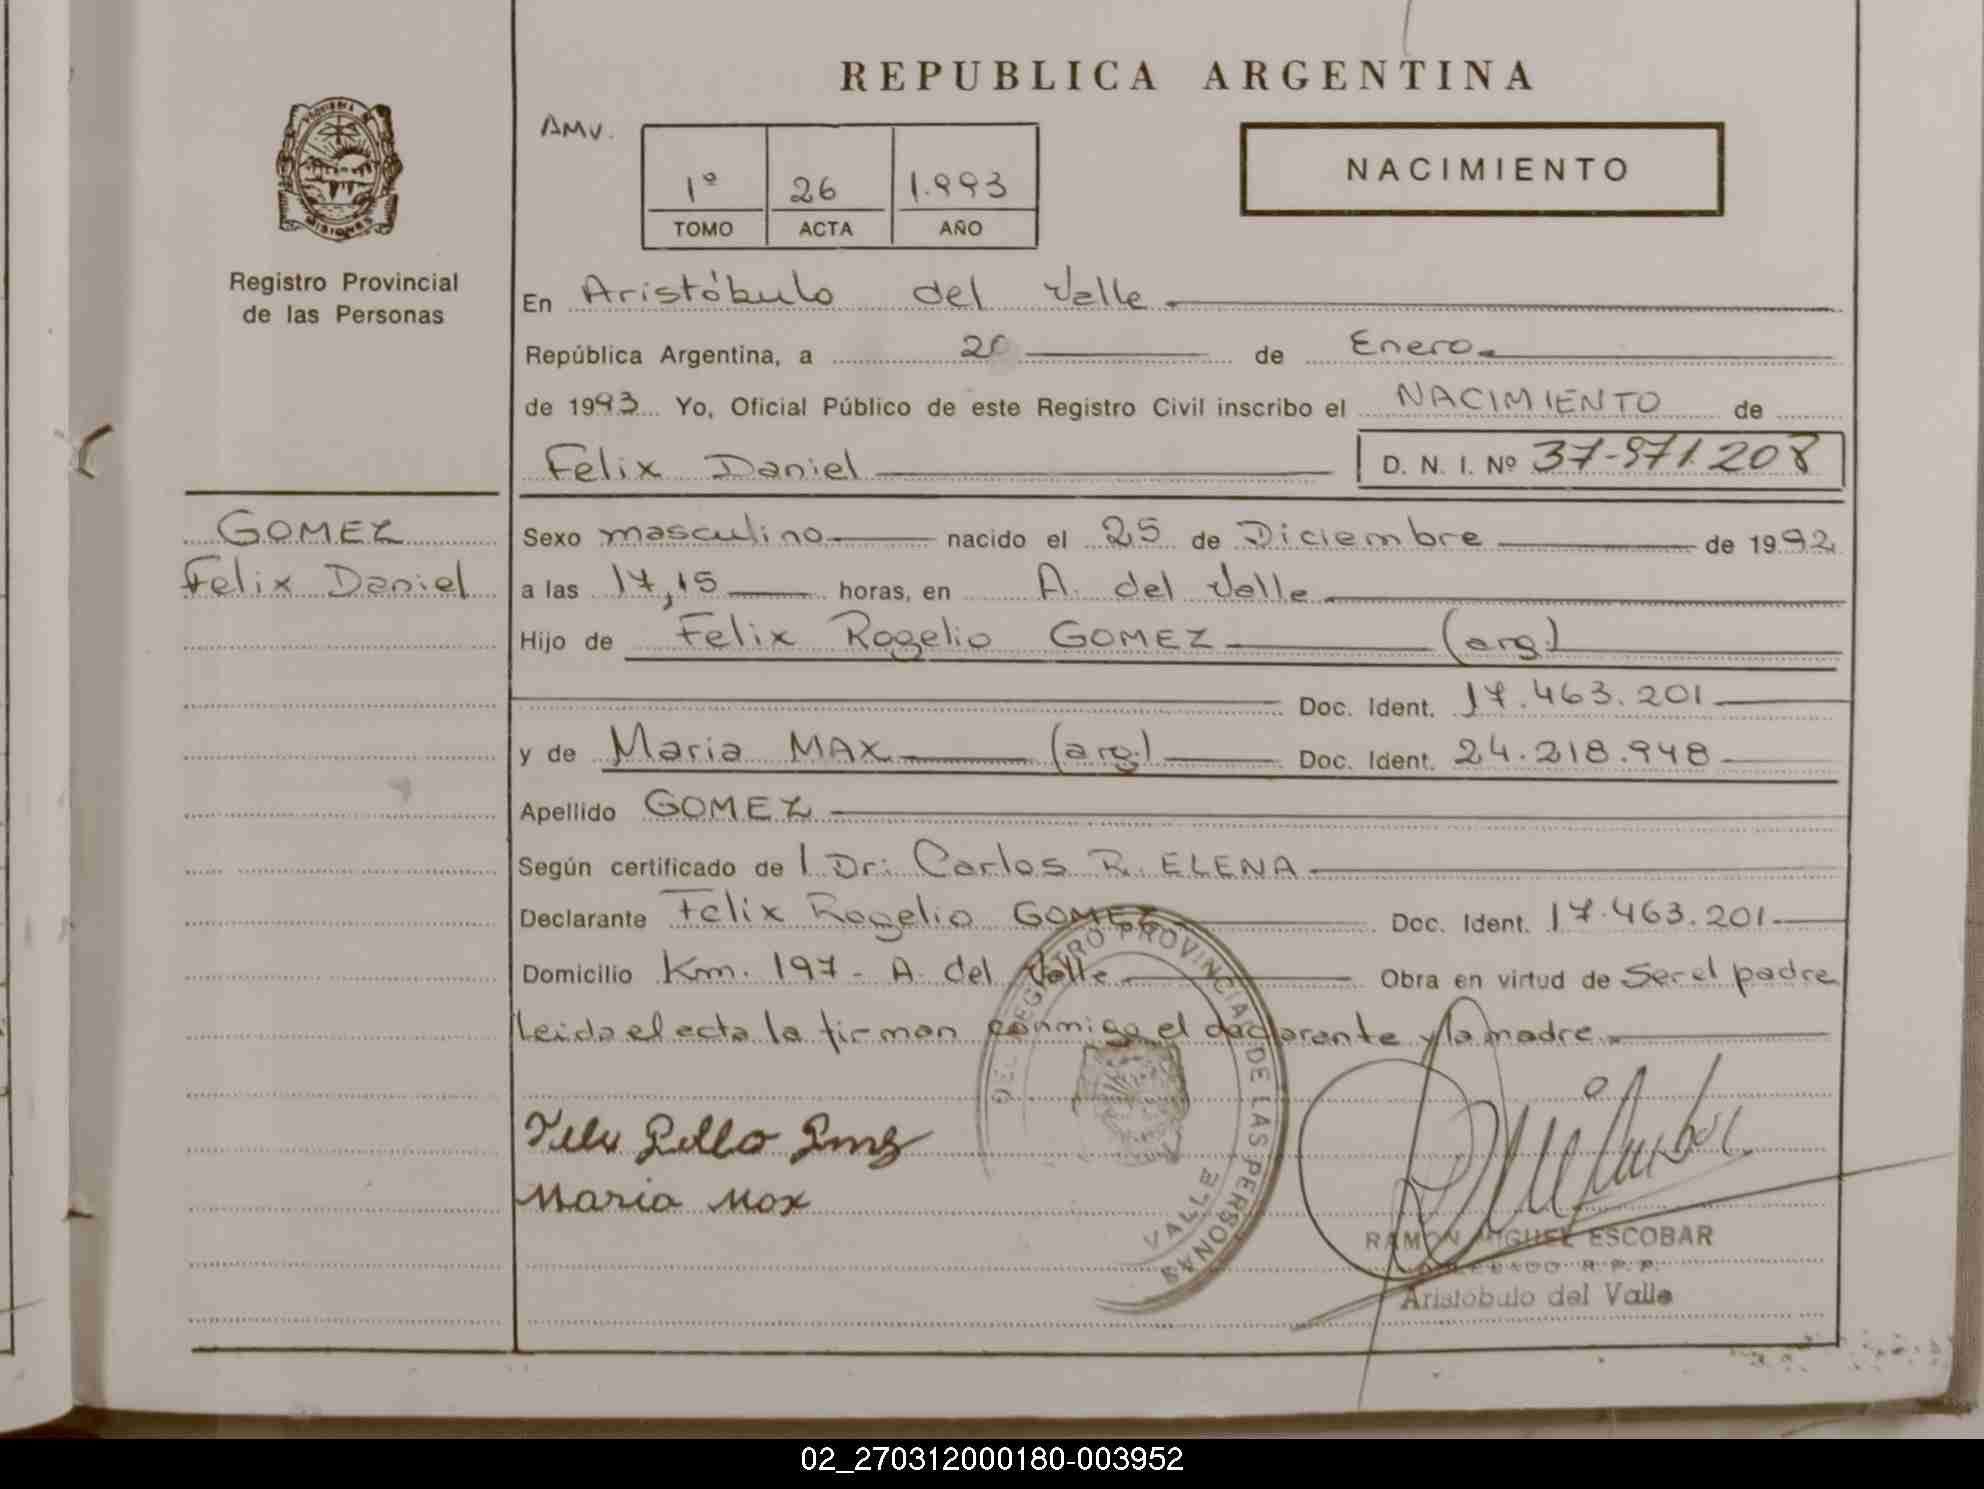 REPUBLICA ARGENTINA
AMV.
1º 26 1.993
TOMO ACTA AÑO
NACIMIENTO
PROVINCIA DE MISIONES
Registro Provincial
de las Personas
En Aristóbulo del Valle
República Argentina, a 20 de Enero
de 1993 Yo, Oficial Público de este Registro Civil inscribo el NACIMIENTO de
Felix Daniel D. N. I. Nº 37-971.208
GOMEZ
Felix Daniel
Sexo masculino nacido el 25 de Diciembre de 1992
a las 17,15 horas, en A. del Valle
Hijo de Felix Rogelio GOMEZ (arg.)
Doc. Ident. 17.463.201
y de Maria MAX (arg.) Doc. Ident. 24.218.948
Apellido GOMEZ
Según certificado de l Dr: Carlos R. ELENA
Declarante Felix Rogelio GOMEZ Doc. Ident. 17.463.201
Domicilio Km. 197 - A. del Valle Obra en virtud de Ser el padre
Leida el acta la firman conmigo el declarante y la madre
DEL REGISTRO PROVINCIAL DE LAS PERSONAS
VALLE
Maria Max
RAMON MIGUEL ESCOBAR
R.P.P.
Aristóbulo del Valle
02_270312000180-003952